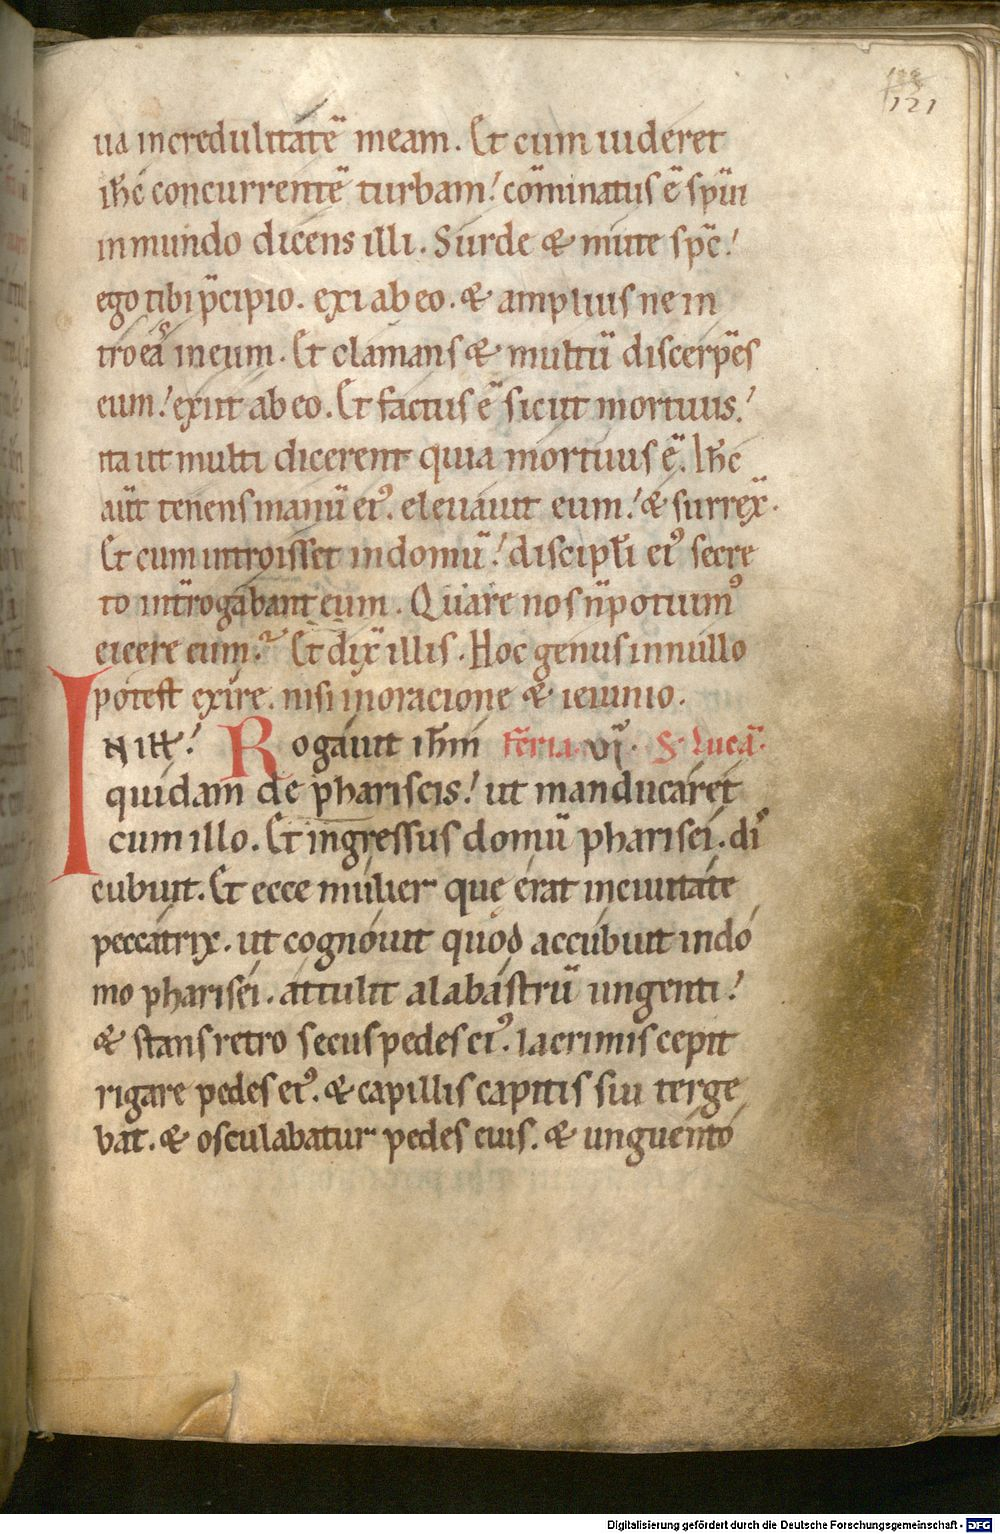 121
ua incredulitatē meam. Et cum uideret
ih̄c concurrentē turbam! cōminatus ē sp̄ui
inmundo dicens illi. Surde & mute sp̄c!
ego tibi p̄cipio. exi ab eo. & amplius ne in
troeas in eum. Et clamans & multū discerp̄es
eum! exiit ab eo. Et factus ē sicut mortuus!
ita ut multi dicerent quia mortuus ē. Ih̄c
aūt tenens manū ei᾽. eleuauit eum! & surrex̄.
Et cum introisset in domū! discipl̄i ei᾽ secre
to int̄rogabant eum. Quare nos n̄ potuim᾽
eicere eum? Et dix̄ illis. Hoc genus in nullo
potest exire. nisi in oracione & ieiunio.
IN ILL̄! Rogauit ih̄m Feria. vi. S. Lucā.
quidam de phariseis! ut manducaret
cum illo. Et ingressus domū pharisei. di
cubuit. Et ecce mulier quę erat in ciuitate
peccatrix. ut cognouit quod accubuit in do
mo pharisei. attulit alabastrū ungenti!
& stans retro secus pedes ei᾽. lacrimis cepit
rigare pedes ei᾽. & capillis capitis sui terge
bat. & osculabatur pedes eius. & unguento
Digitalisierung gefördert durch die Deutsche Forschungsgemeinschaft - DFG